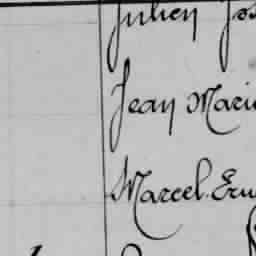 Julien Jos
Jean Marie
Marcel Ern